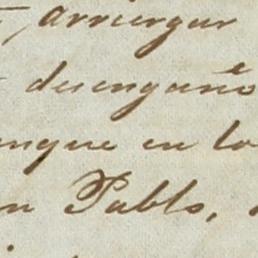 , arriesgar
desengañe
nque en lo
n Pablo,